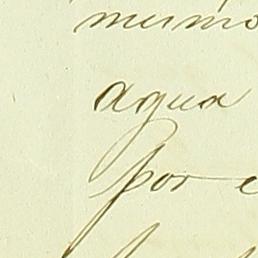 mismo
agua
por